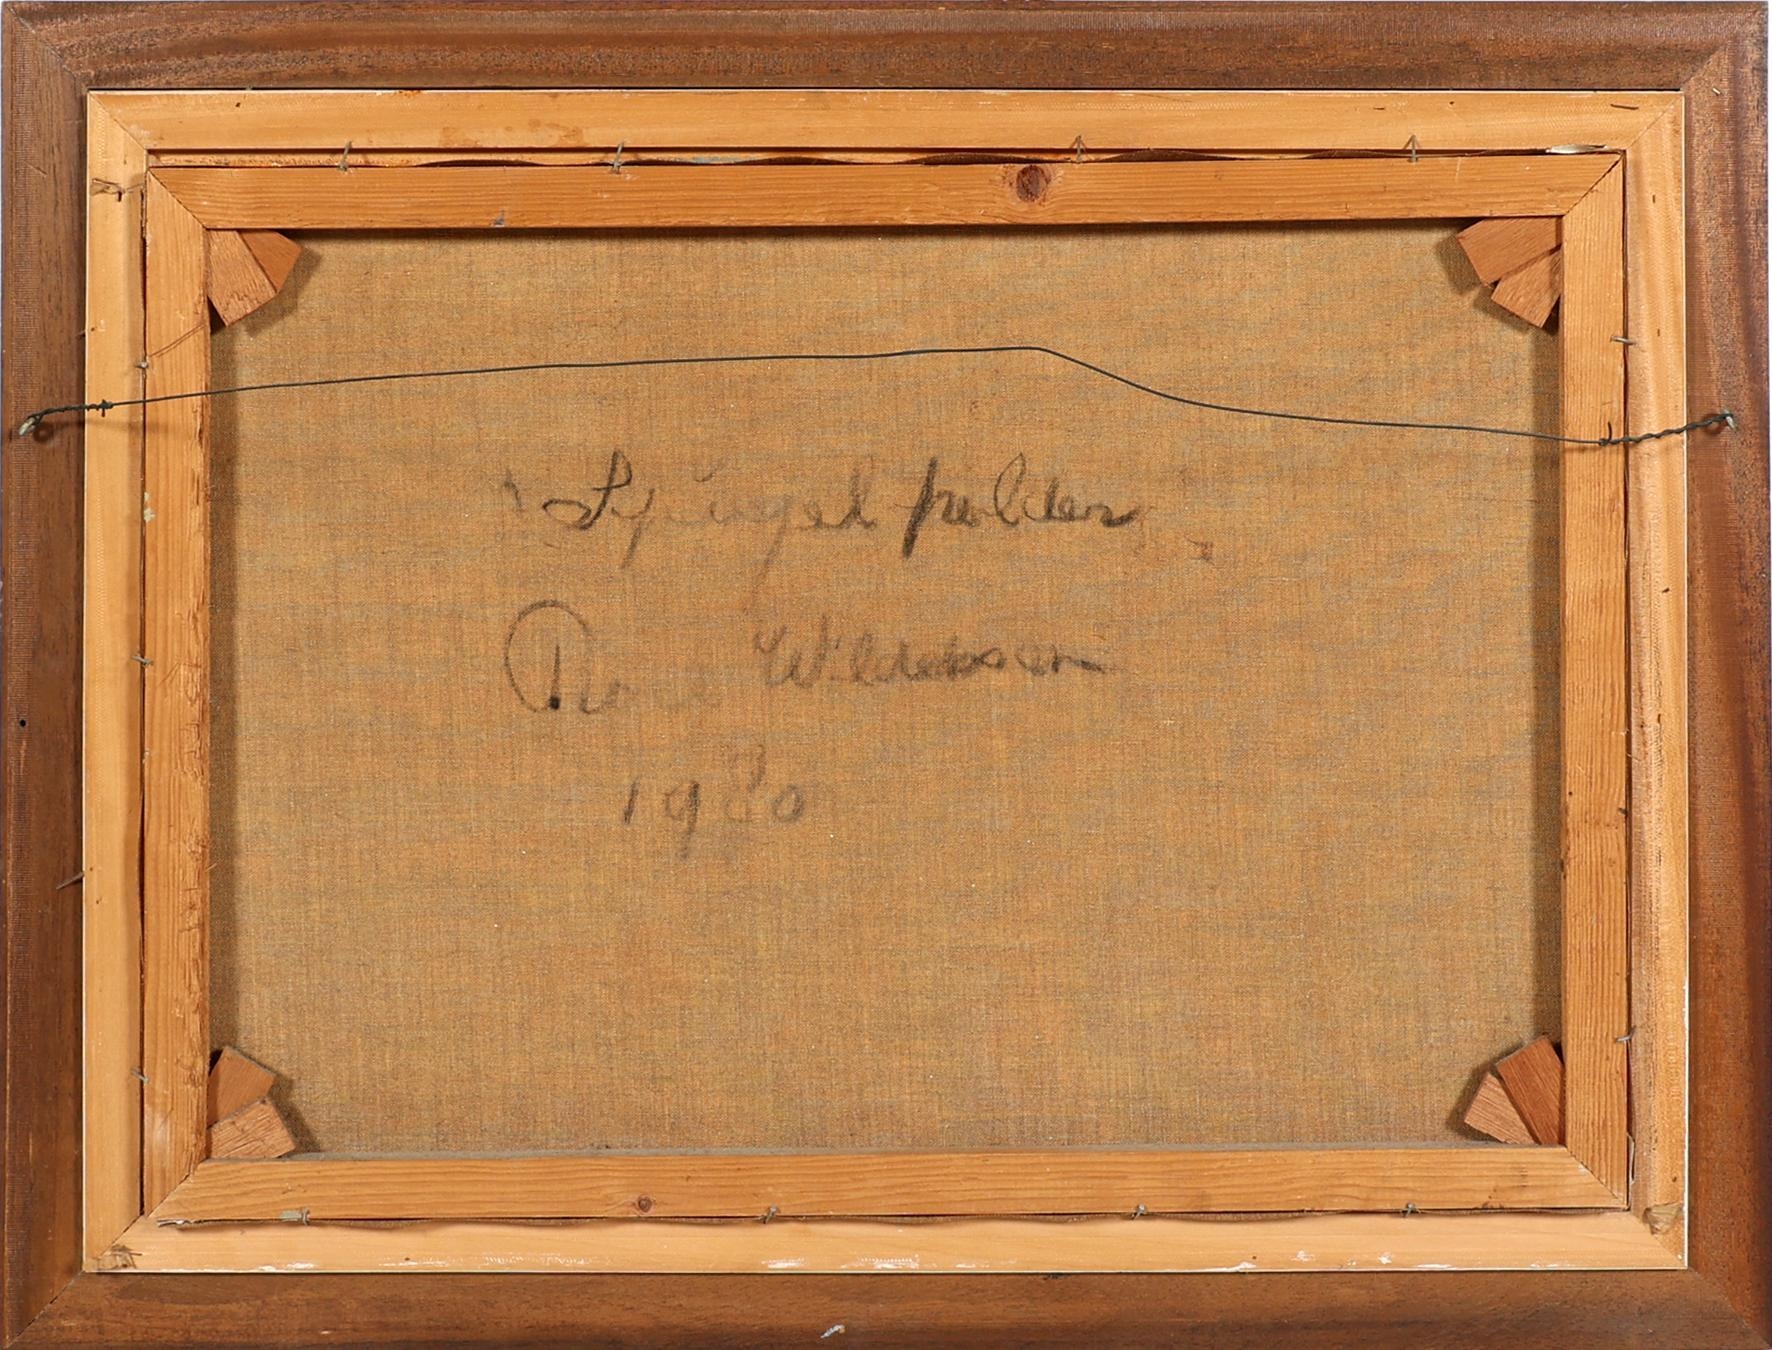 Spiegel polder
Wildeboer
1980